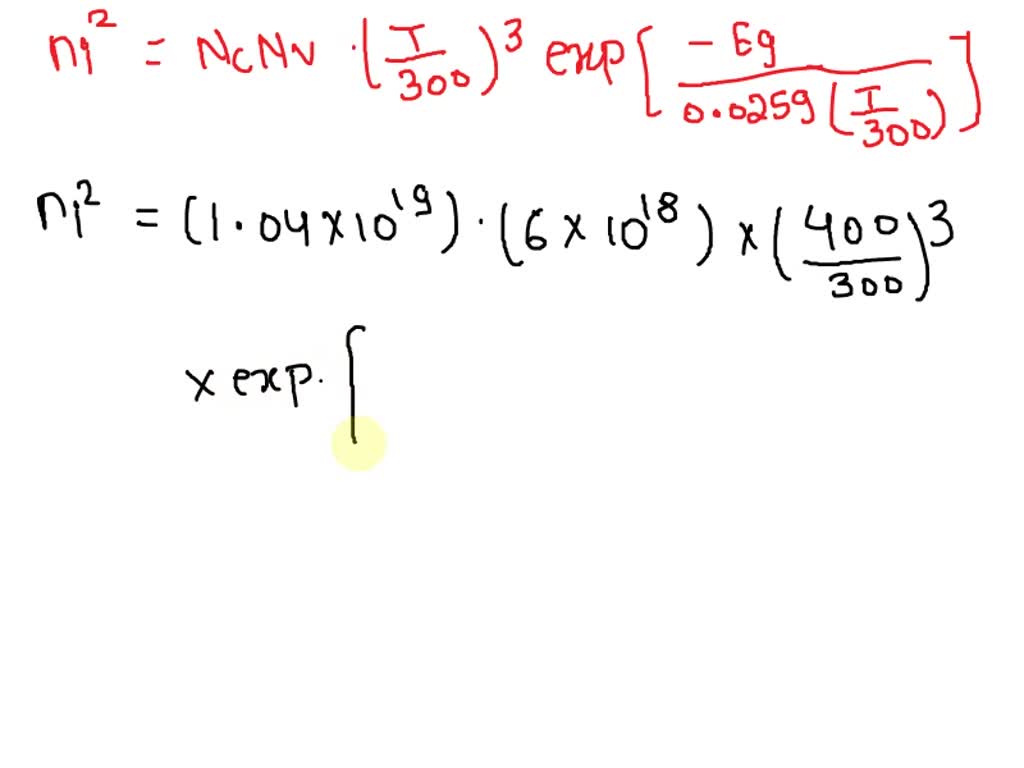 ni² = NcNv · (T/300)³ exp[ -Eg / 0.0259 (T/300) ]
ni² = (1.04 × 10¹⁹) · (6 × 10¹⁸) × (400/300)³
x exp. [